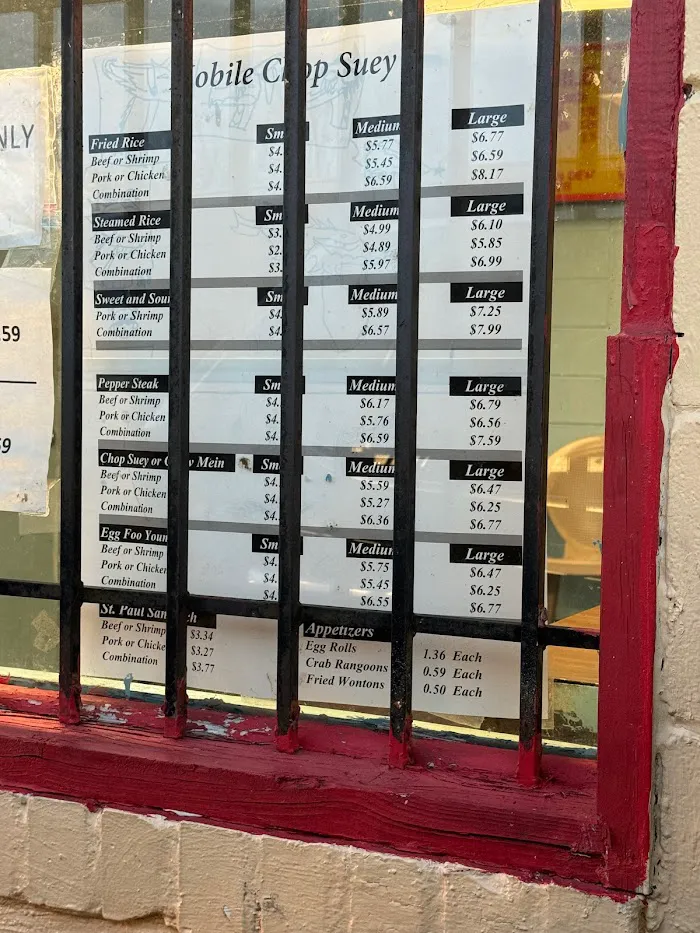 NLY
.59
59
obile Chop Suey
Fried Rice Sm Medium Large
Beef or Shrimp $4. $5.77 $6.77
Pork or Chicken $4. $5.45 $6.59
Combination $4. $6.59 $8.17
Steamed Rice Sm Medium Large
Beef or Shrimp $3. $4.99 $6.10
Pork or Chicken $2. $4.89 $5.85
Combination $3. $5.97 $6.99
Sweet and Sour Sm Medium Large
Pork or Shrimp $4. $5.89 $7.25
Combination $4. $6.57 $7.99
Pepper Steak Sm Medium Large
Beef or Shrimp $4. $6.17 $6.79
Pork or Chicken $4. $5.76 $6.56
Combination $4. $6.59 $7.59
Chop Suey or Chow Mein Sm Medium Large
Beef or Shrimp $4. $5.59 $6.47
Pork or Chicken $4. $5.27 $6.25
Combination $4. $6.36 $6.77
Egg Foo Youn Sm Medium Large
Beef or Shrimp $4. $5.75 $6.47
Pork or Chicken $4. $5.45 $6.25
Combination $4. $6.55 $6.77
St. Paul Sandwich
Beef or Shrimp $3.34
Pork or Chicken $3.27
Combination $3.77
Appetizers
Egg Rolls 1.36 Each
Crab Rangoons 0.59 Each
Fried Wontons 0.50 Each